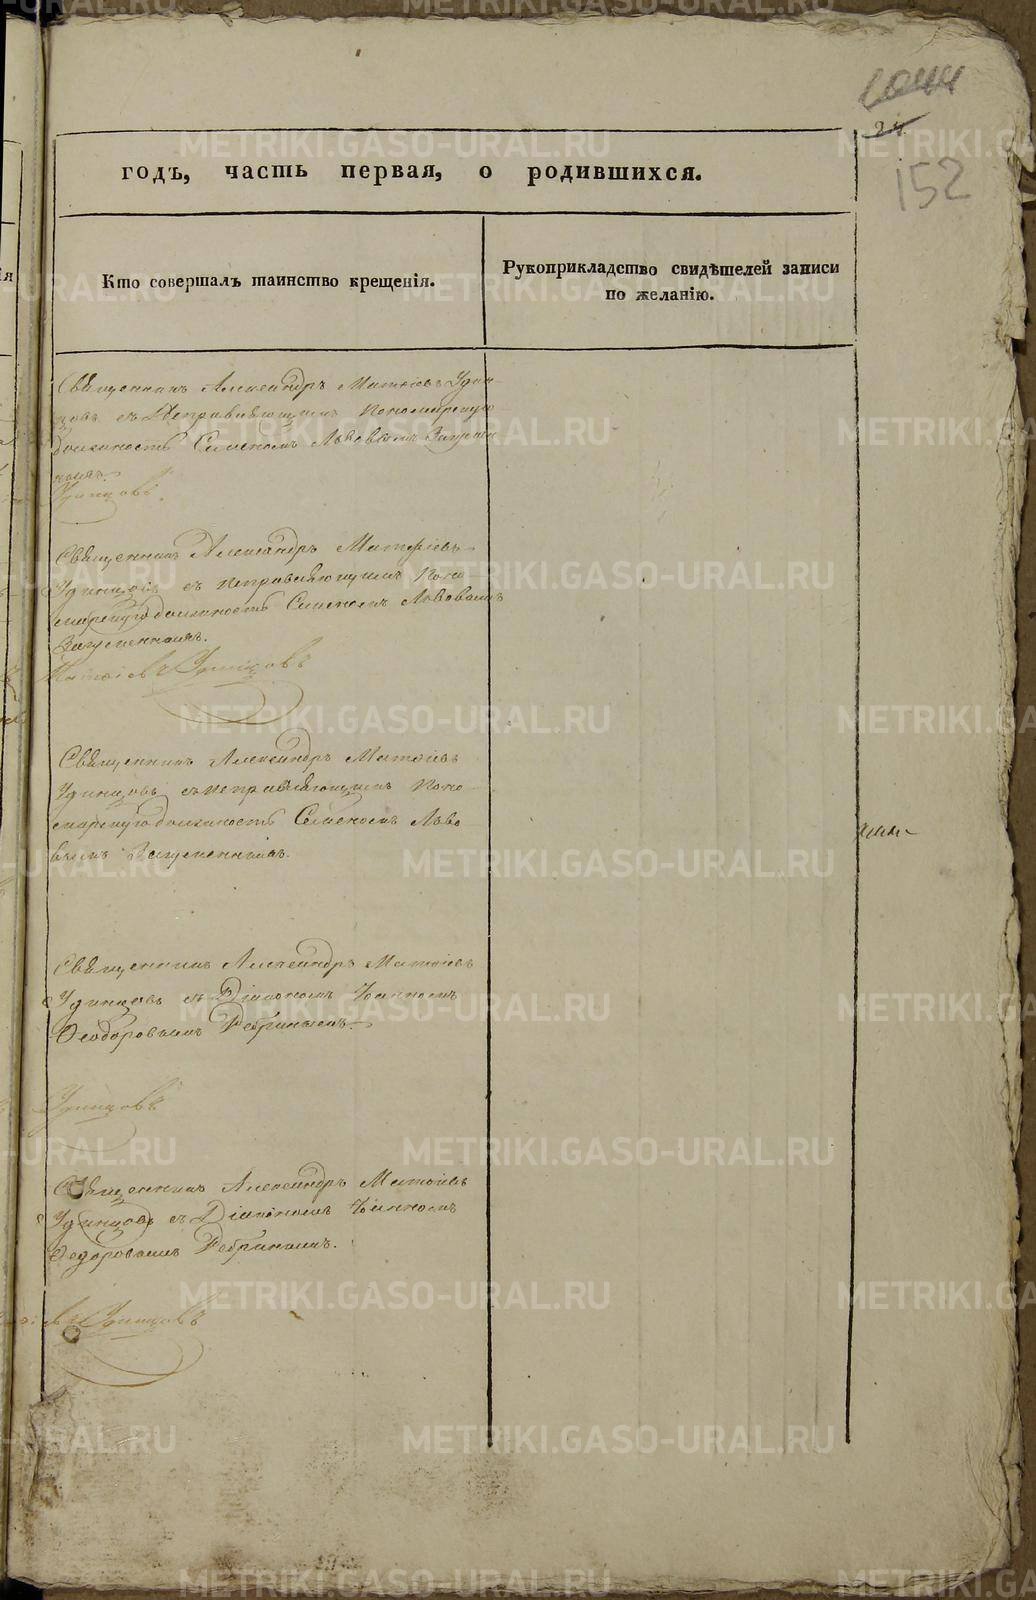 24.
152
годъ, часть первая, о родившихся.
Кто совершалъ таинство крещенія.
Рукоприкладство свидѣтелей записи
по желанію.
Священникъ Александръ Матѳіевъ Удин-
цовъ съ Исправляющимъ Пономарскую
должность Семеномъ Львовымъ
Удинцовъ.
Священникъ Александръ Матѳіевъ
Удинцовъ съ исправляющимъ Поно-
марскую должность Семеномъ Львовымъ
Загуменнымъ.
Матѳіевъ Удинцовъ
Священникъ Александръ Матѳіевъ
Удинцовъ съ исправляющимъ Поно-
марскую должность Семеномъ Льво-
вымъ Загуменнымъ.
Священникъ Александръ Матѳіевъ
Удинцовъ съ Діакономъ Іоанномъ
Ѳеодоровымъ Ребринымъ.
Удинцовъ
Священникъ Александръ Матѳіевъ
Удинцовъ съ Діакономъ Іоанномъ
Ѳедоровымъ Ребринымъ.
Удинцовъ
METRIKI.GASO-URAL.RU